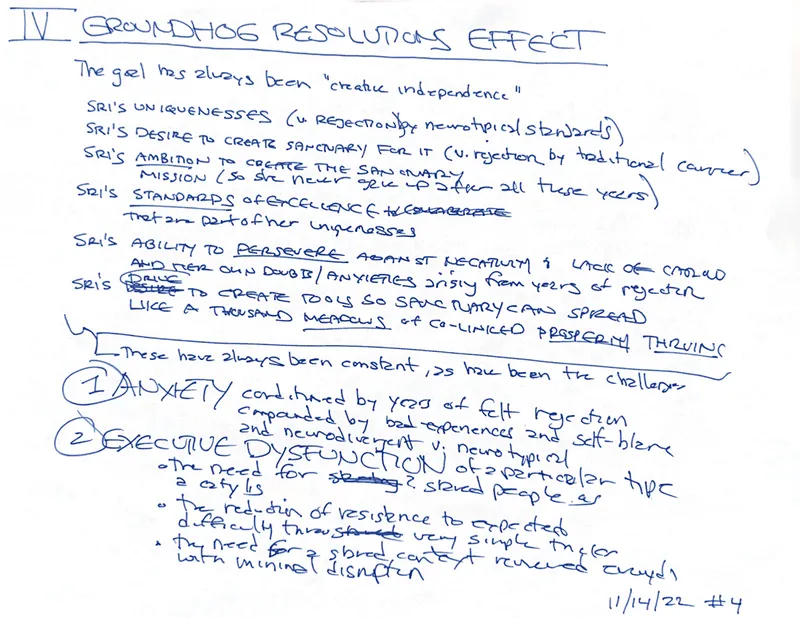 IV GROUNDHOG RESOLUTIONS EFFECT
The goal has always been "creative independence"
SRI'S UNIQUENESSES (v. REJECTION by neurotypical standards)
SRI'S DESIRE TO CREATE SANCTUARY FOR IT (v. rejection by traditional career)
SRI'S AMBITION TO CREATE THE SANCTUARY
MISSION (so she never gave up after all these years)
SRI'S STANDARDS OF EXCELLENCE
that are part of her uniquenesses
SRI'S ABILITY TO PERSEVERE AGAINST NEGATIVITY & LACK OF
AND HER OWN DOUBTS/ANXIETIES arising from years of rejection
SRI'S DRIVE TO CREATE TOOLS SO SANCTUARY CAN SPREAD
LIKE A THOUSAND MEADOWS of CO-LINKED PROSPERITY THRIVING
These have always been constant, as have been the challenges
1 ANXIETY conditioned by years of felt rejection
compounded by bad experiences and self-blame
and neurodivergent v. neurotypical
2 EXECUTIVE DYSFUNCTION of a particular type
• the need for shared people as
a catylis
• the reduction of resistence to expected
difficulty thru very simple trigger
• the need for a shared context renewed
with minimal disruption
11/14/22 #4